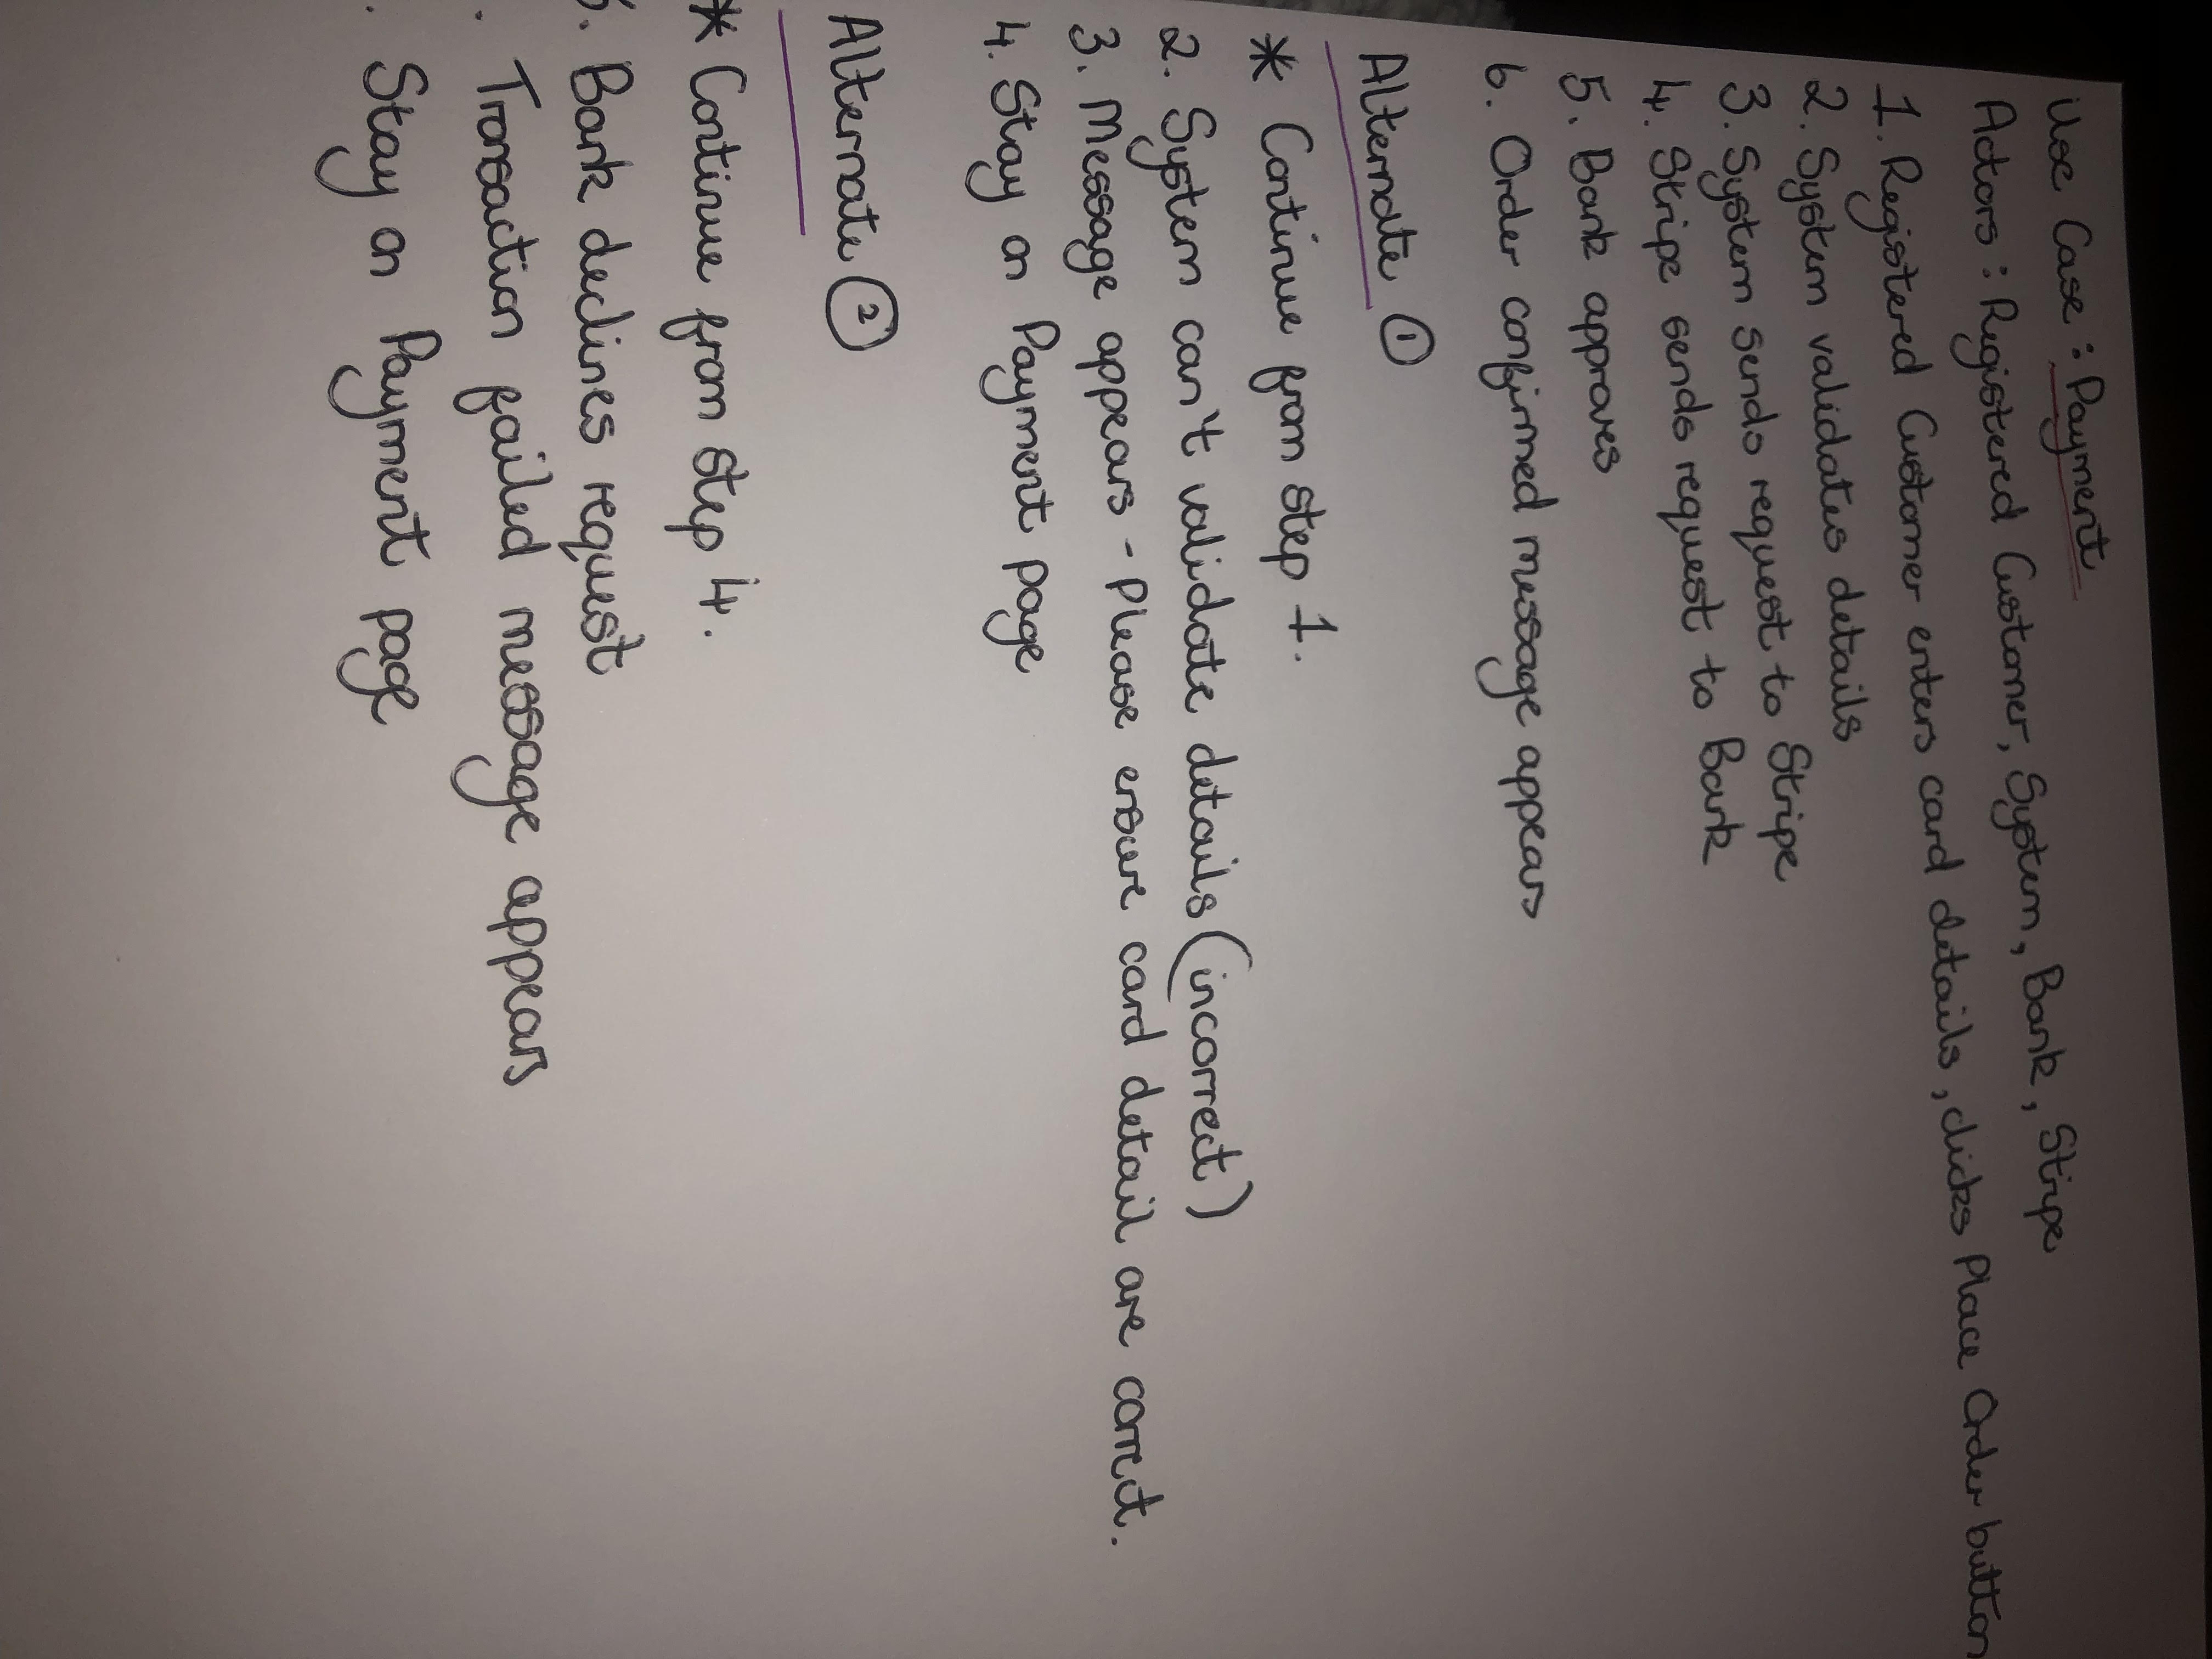 Use Case : Payment
Actors : Registered Customer, System, Bank, Stripe
1. Registered Customer enters card details, clicks Place Order button
2. System validates details
3. System sends request to Stripe
4. Stripe sends request to Bank
5. Bank approves
6. Order confirmed message appears
Alternate ①
* Continue from step 1.
2. System can't validate details (incorrect)
3. Message appears - Please ensure card detail are correct.
4. Stay on Payment page
Alternate ②
* Continue from step 4.
. Bank declines request
. Transaction failed message appears
. Stay on Payment page